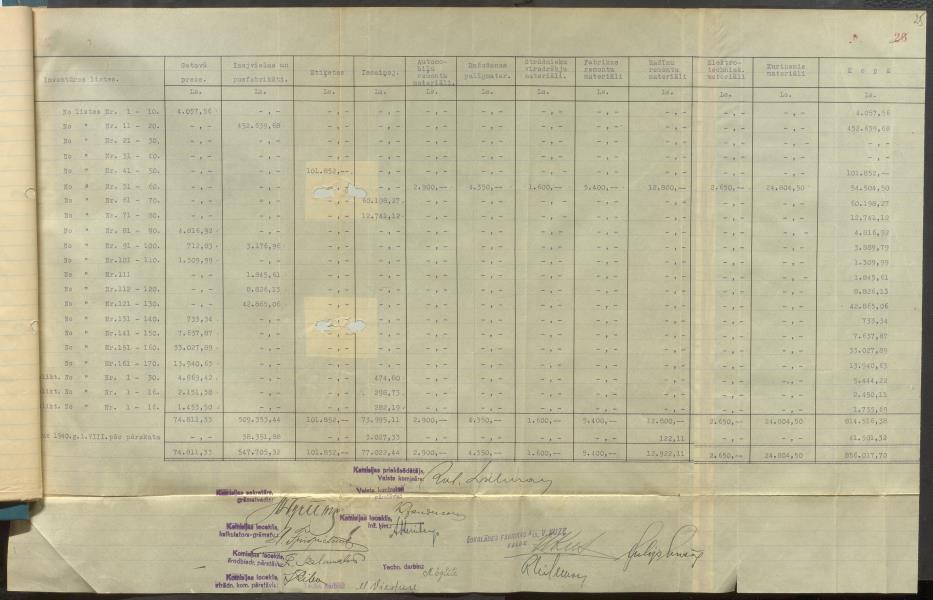 25
28
Inventūras listes. Gatavā prece. Izejvielas un pusfabrikāti. Etiķetes Iesaiņoj. Automobiļu remontu materiāli. Ražošanas palīgmater. Strādnieku virsdrēbju materiāli. Fabrikas remontu materiāli Mašīnu remontu materiāli Elektrotechniek. materiāli Kurināmie materiāli K o p ā
Ls. Ls. Ls. Ls. Ls. Ls. Ls. Ls. Ls. Ls. Ls. Ls.
No listes Nr. 1 - 10. 4.057,56 -,- -,- -,- -,- -,- -,- -,- -,- -,- -,- 4.057,56
No " Nr. 11 - 20. -,- 452.639,68 -,- -,- -,- -,- -,- -,- -,- -,- -,- 452.639,68
No " Nr. 21 - 30. -,- -,- -,- -,- -,- -,- -,- -,- -,- -,- -,- -,-
No " Nr. 31 - 40. -,- -,- -,- -,- -,- -,- -,- -,- -,- -,- -,- -,-
No " Nr. 41 - 50. -,- -,- 101.852,-- -,- -,- -,- -,- -,- -,- -,- -,- 101.852,--
No " Nr. 51 - 60. -,- -,- -,- -,- 2.900,-- 4.350,-- 1.600,-- 5.400,-- 12.800,-- 2.650,-- 24.804,50 54.504,50
No " Nr. 61 - 70. -,- -,- -,- 60.198,27 -,- -,- -,- -,- -,- -,- -,- 60.198,27
No " Nr. 71 - 80. -,- -,- -,- 12.741,12 -,- -,- -,- -,- -,- -,- -,- 12.741,12
No " Nr. 81 - 90. 4.816,92 -,- -,- -,- -,- -,- -,- -,- -,- -,- -,- 4.816,92
No " Nr. 91 - 100. 712,83 3.176,96 -,- -,- -,- -,- -,- -,- -,- -,- -,- 3.889,79
No " Nr.101 - 110. 1.309,99 -,- -,- -,- -,- -,- -,- -,- -,- -,- -,- 1.309,99
No " Nr.111 -,- 1.845,61 -,- -,- -,- -,- -,- -,- -,- -,- -,- 1.845,61
No " Nr.112 - 120. -,- 8.826,13 -,- -,- -,- -,- -,- -,- -,- -,- -,- 8.826,13
No " Nr.121 - 130. -,- 42.865,06 -,- -,- -,- -,- -,- -,- -,- -,- -,- 42.865,06
No " Nr.131 - 140. 733,34 -,- -,- -,- -,- -,- -,- -,- -,- -,- -,- 733,34
No " Nr.141 - 150. 7.637,87 -,- -,- -,- -,- -,- -,- -,- -,- -,- -,- 7.637,87
No " Nr.151 - 160. 33.027,89 -,- -,- -,- -,- -,- -,- -,- -,- -,- -,- 33.027,89
No " Nr.161 - 170. 13.940,63 -,- -,- -,- -,- -,- -,- -,- -,- -,- -,- 13.940,63
No " Nr. 1 - 30. 4.969,42 -,- -,- 474,80 -,- -,- -,- -,- -,- -,- -,- 5.444,22
No " Nr. 1 - 16. 2.151,38 -,- -,- 298,73 -,- -,- -,- -,- -,- -,- -,- 2.450,11
No " Nr. 1 - 16. 1.453,50 -,- -,- 282,19 -,- -,- -,- -,- -,- -,- -,- 1.735,69
74.811,33 509.353,44 101.852,-- 73.995,11 2.900,-- 4.350,-- 1.600,-- 5.400,-- 12.800,-- 2.650,-- 24.804,50 814.516,38
1940.g.1.VIII.pēc pārskata -,- 38.351,88 3.027,33 122,11 41.501,32
74.811,33 547.705,32 101.852,-- 77.022,44 2.900,-- 4.350,-- 1.600,-- 5.400,-- 12.922,11 2.650,-- 24.804,50 856.017,70
Komisijas priekšsēdētājs,
Valsts komisārs:
Komisijas sekretārs,
grāmatvedis:
Valsts kontroles
Komisijas loceklis,
inž. ķīm.:
Komisijas loceklis,
kalkulators-grāmatv.:
Komisijas loceklis,
Komisijas loceklis,
strādn. kom. pārstāvis:
Techn. darbin:
Techn. darbin: